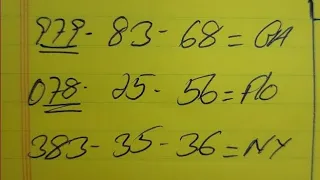 979- 83 - 68 = GA
078- 25 - 56 = Flo
383- 35 - 36 = NY